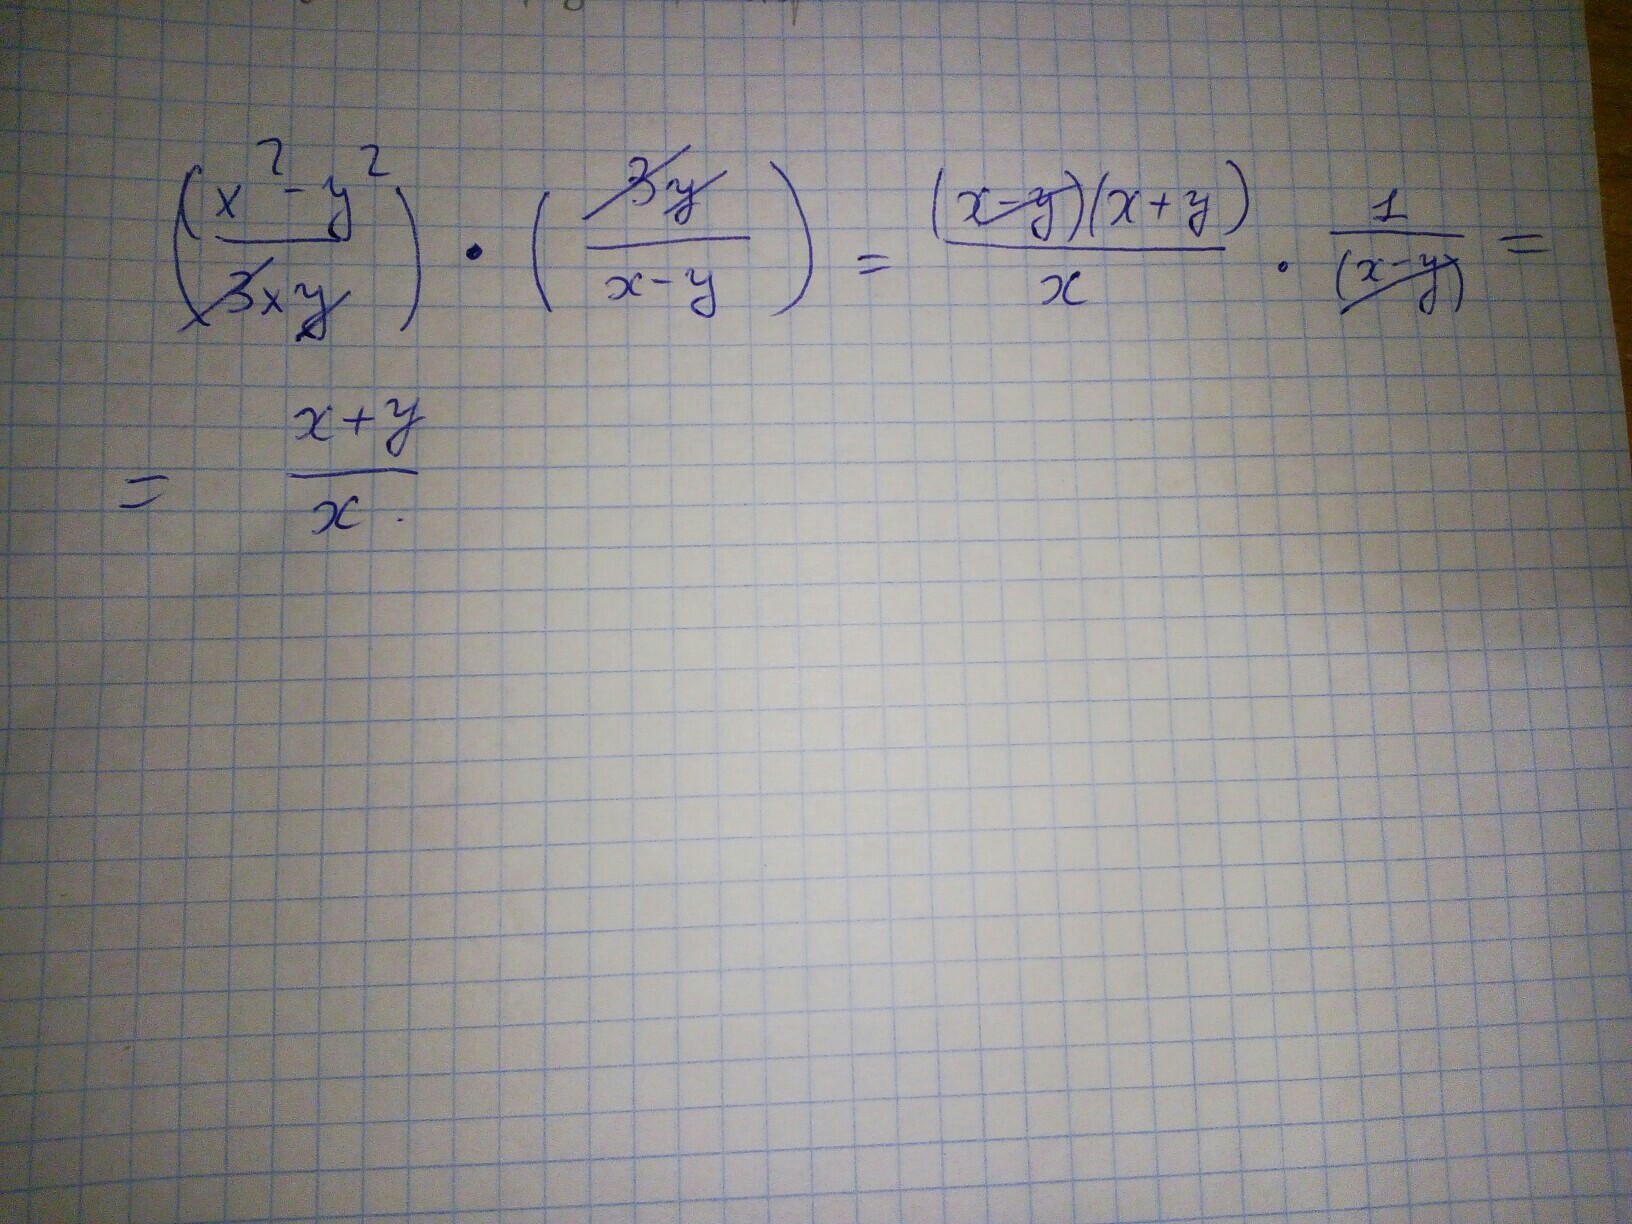 (x² - y² / 3xy) · (3y / x - y) = (x - y)(x + y) / x · 1 / (x - y) =
= x + y / x .